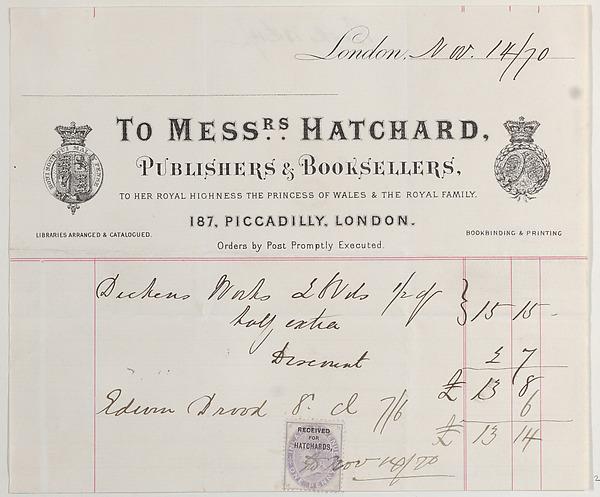 London, Nov. 14/70
TO MESSRS. HATCHARD,
PUBLISHERS & BOOKSELLERS,
TO HER ROYAL HIGHNESS THE PRINCESS OF WALES & THE ROYAL FAMILY.
187, PICCADILLY, LONDON.
LIBRARIES ARRANGED & CATALOGUED.
BOOKBINDING & PRINTING
Orders by Post Promptly Executed.
Dickens Works Vols 1/2 cf
half extra } 15 15 -
Discount 2 7
£ 13 8
Edwin Drood 8. cl 7/6 6
£ 13 14
RECEIVED
FOR
HATCHARDS,
Nov 14/70